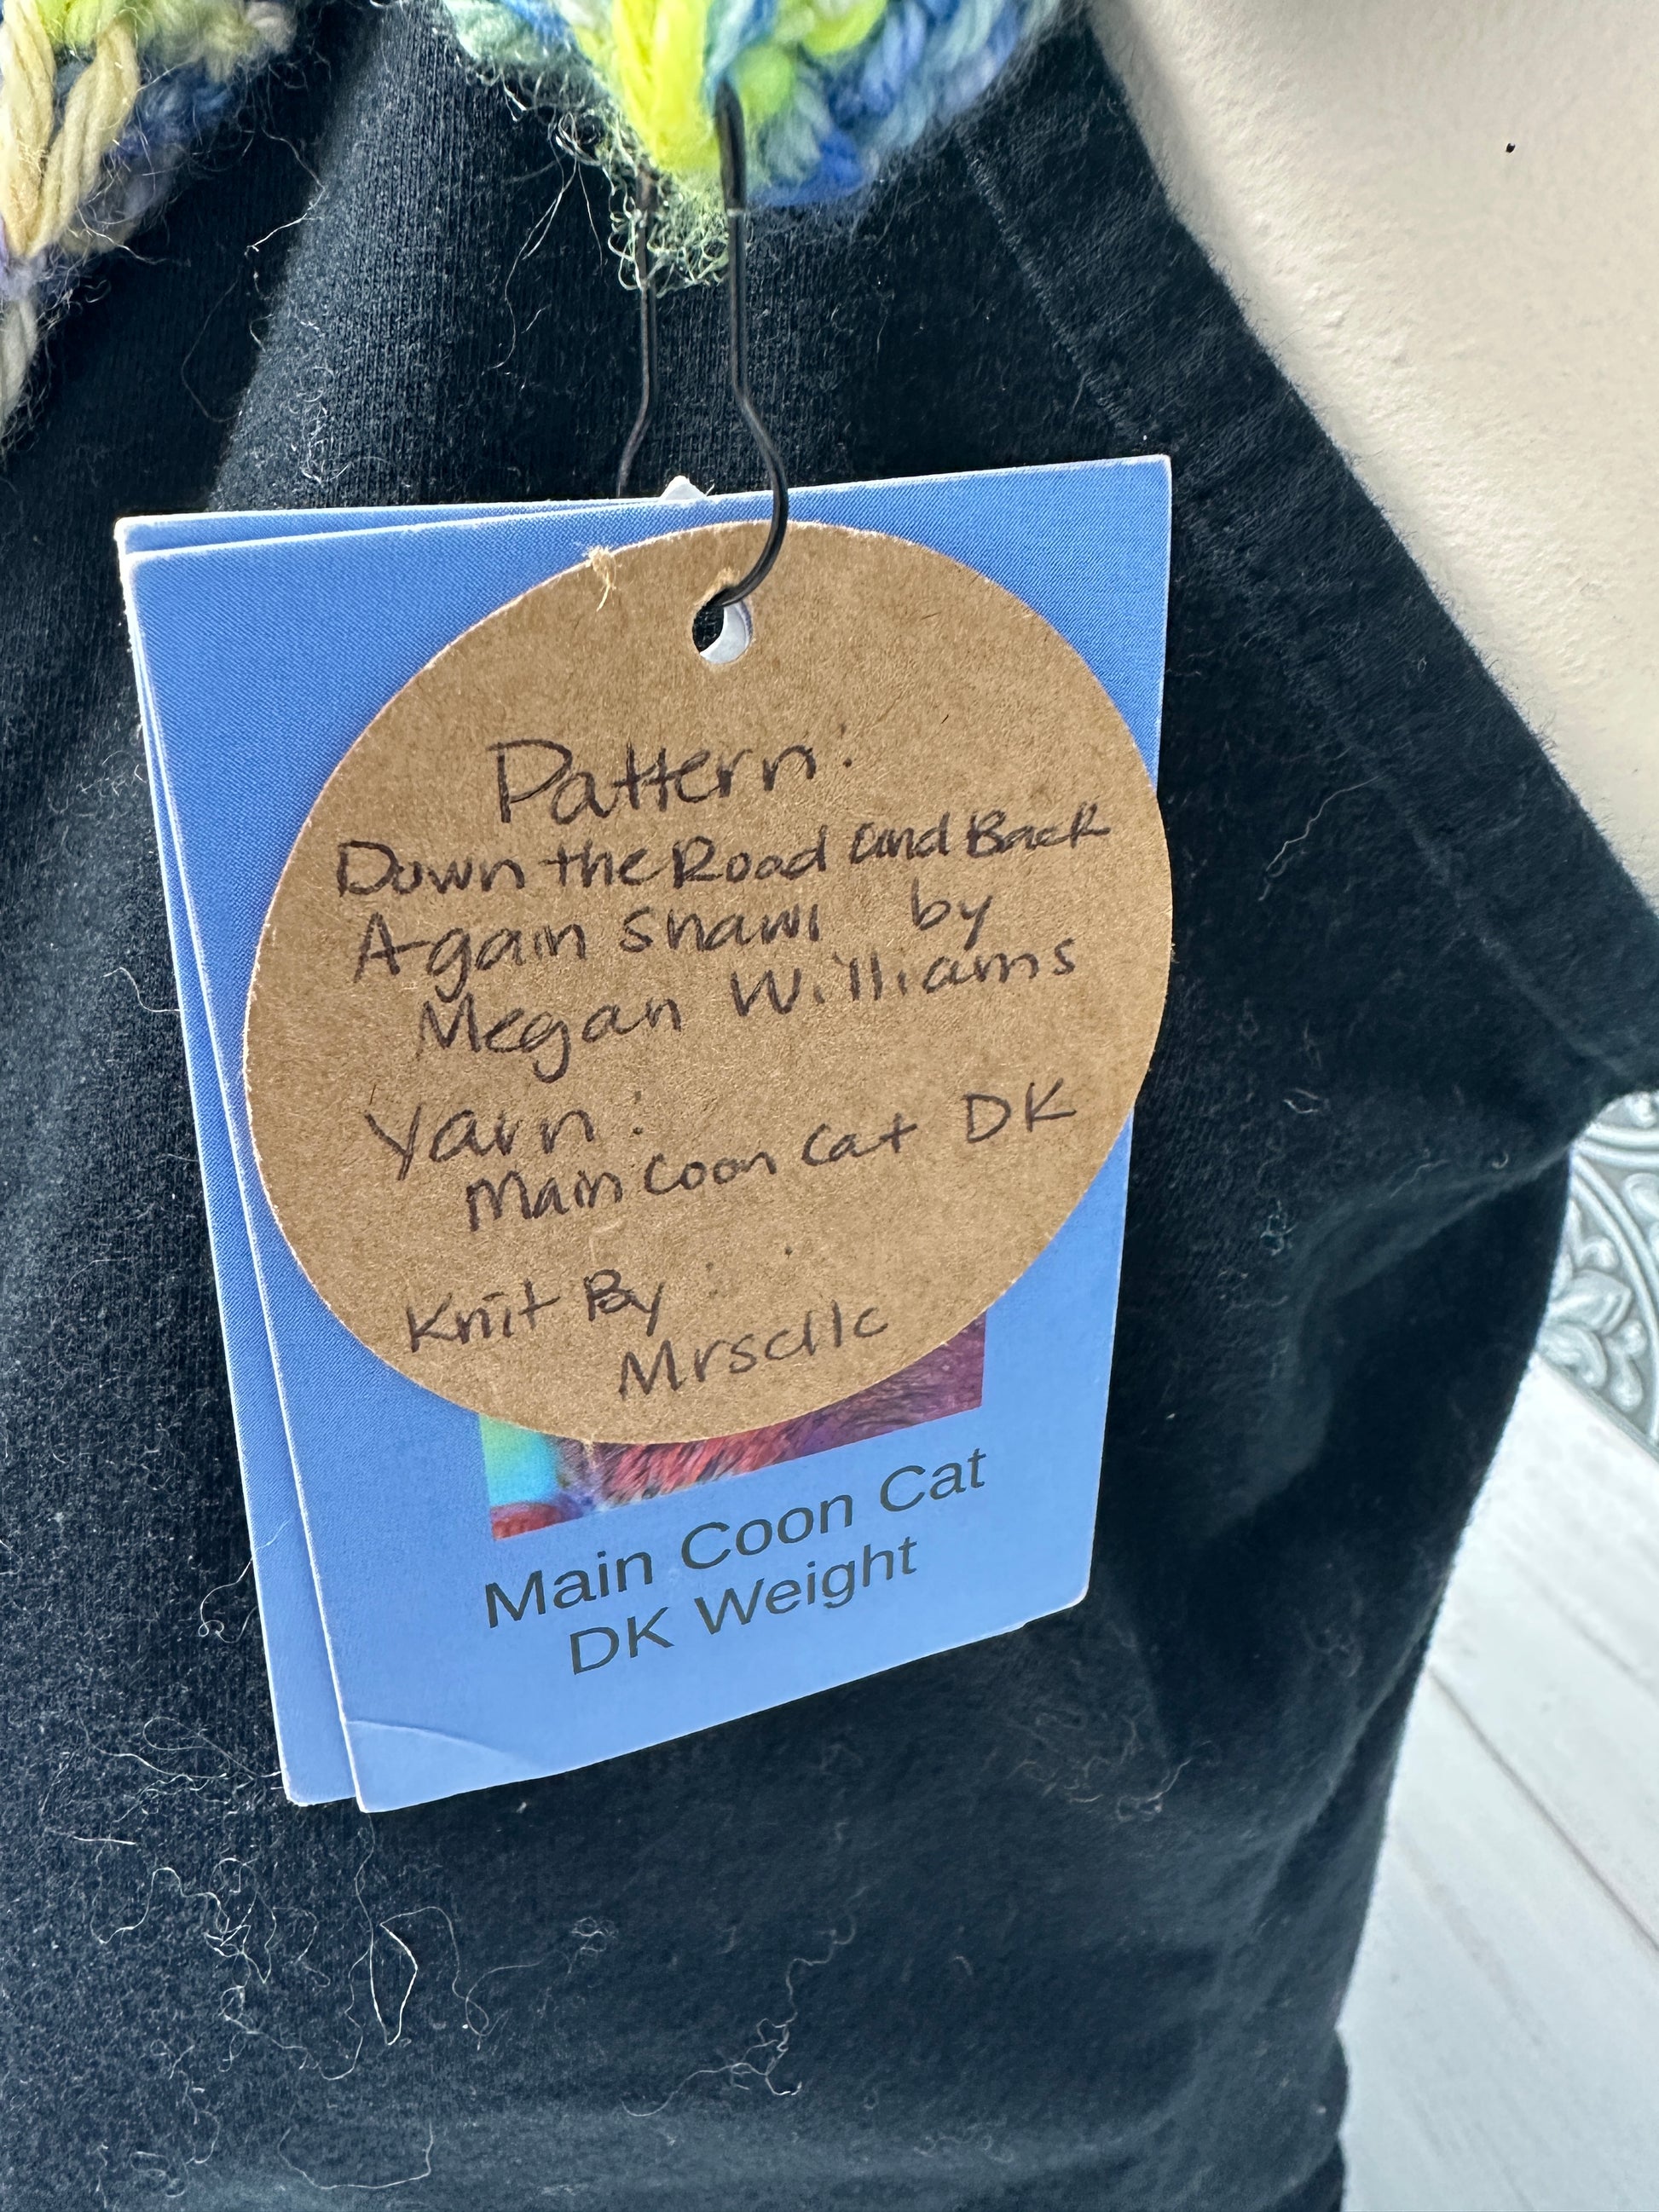 Pattern:
Down the Road and Back
Again Shawl by
Megan Williams
Yarn:
Main Coon Cat DK
Knit By:
Mrscllc
Main Coon Cat
DK Weight